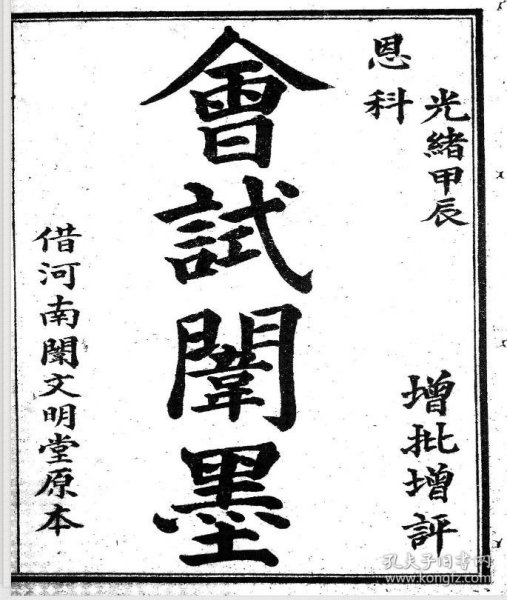 光緒甲辰
恩科
增批增評
會試闈墨
借河南闈文明堂原本
孔夫子旧书网
www.kongfz.com